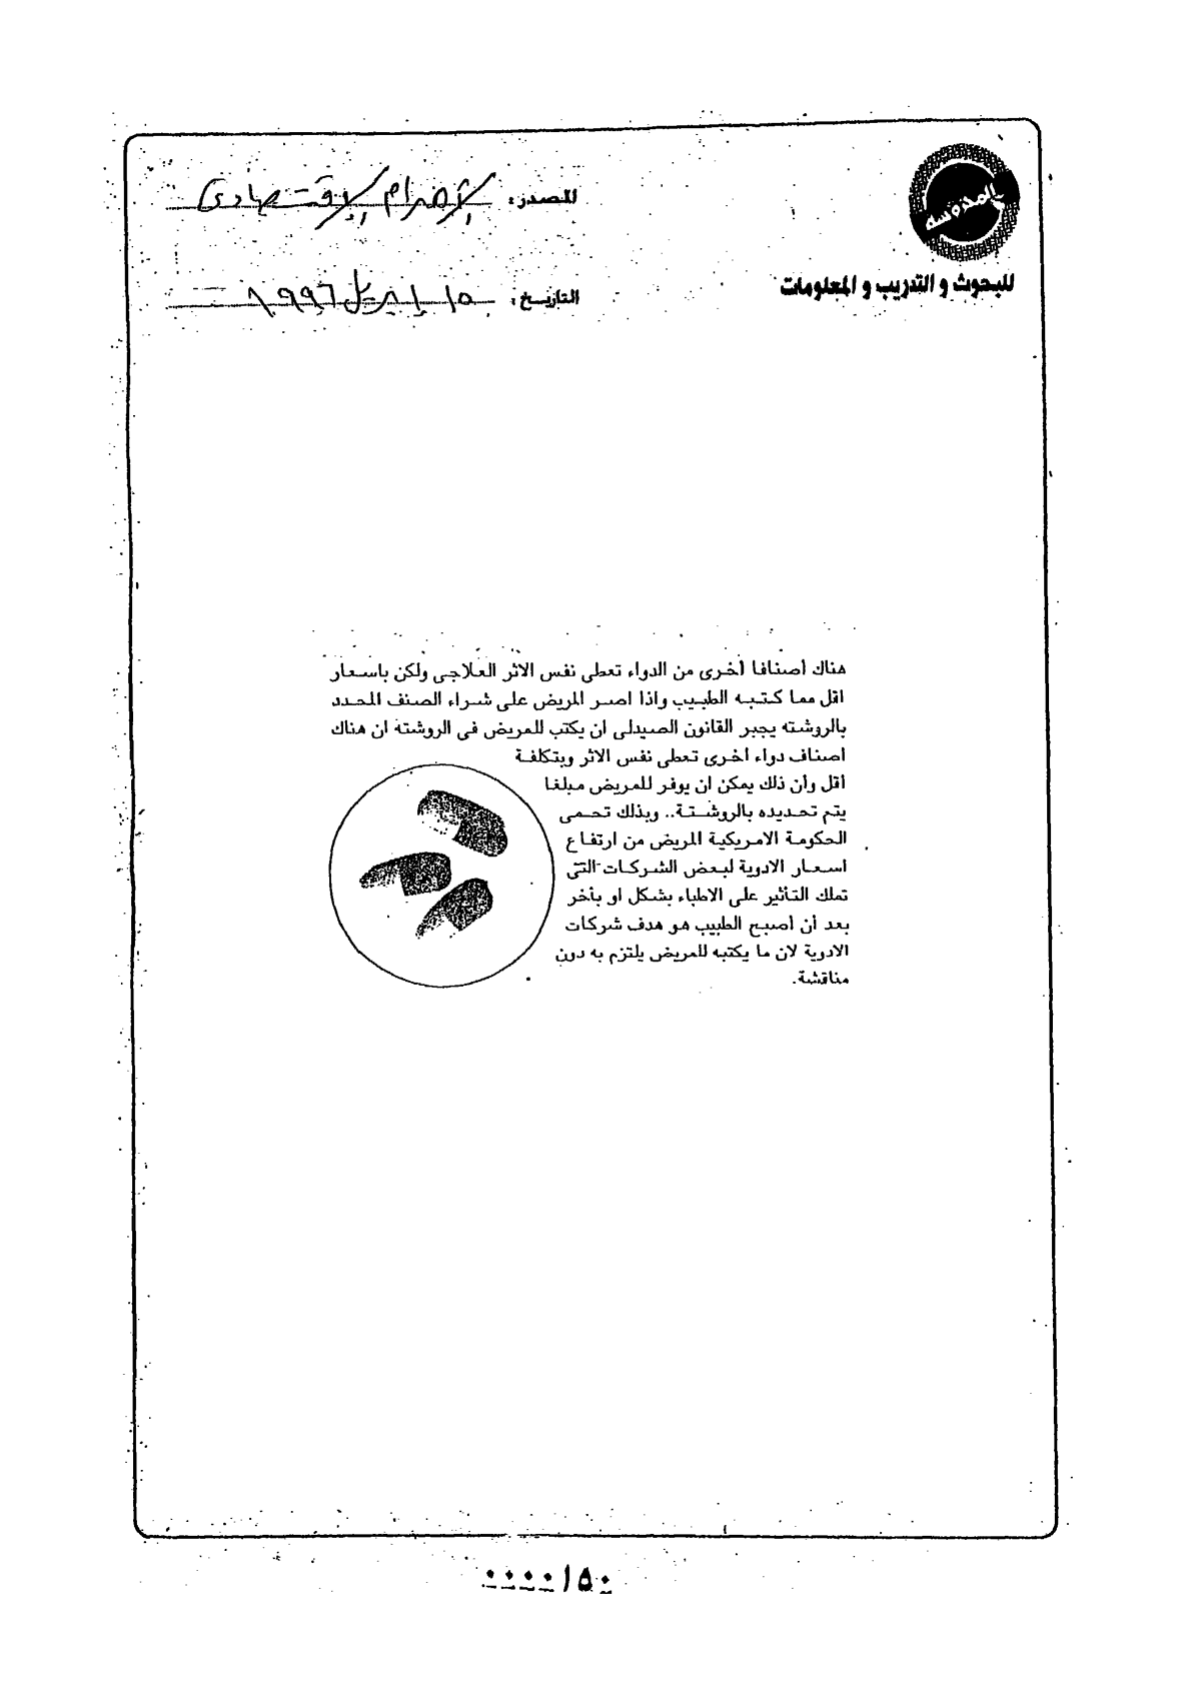 المحروسة
للبحوث و التدريب و المعلومات
المصدر: الأهرام الإقتصادى
التاريخ: ١٥ إبريل ١٩٩٦
هناك أصنافا أخرى من الدواء تعطى نفس الاثر العلاجى ولكن باسعار
اقل مما كتبه الطبيب واذا اصر المريض على شراء الصنف المحدد
بالروشته يجبر القانون الصيدلى ان يكتب للمريض فى الروشته ان هناك
اصناف دواء اخرى تعطى نفس الاثر وبتكلفة
اقل وأن ذلك يمكن ان يوفر للمريض مبلغا
يتم تحديده بالروشتة.. وبذلك تحمى
الحكومة الامريكية المريض من ارتفاع
اسعار الادوية لبعض الشركات التى
تملك التأثير على الاطباء بشكل او بأخر
بعد أن أصبح الطبيب هو هدف شركات
الادوية لان ما يكتبه للمريض يلتزم به دون
مناقشة.
٠٠٠٠١٥٠